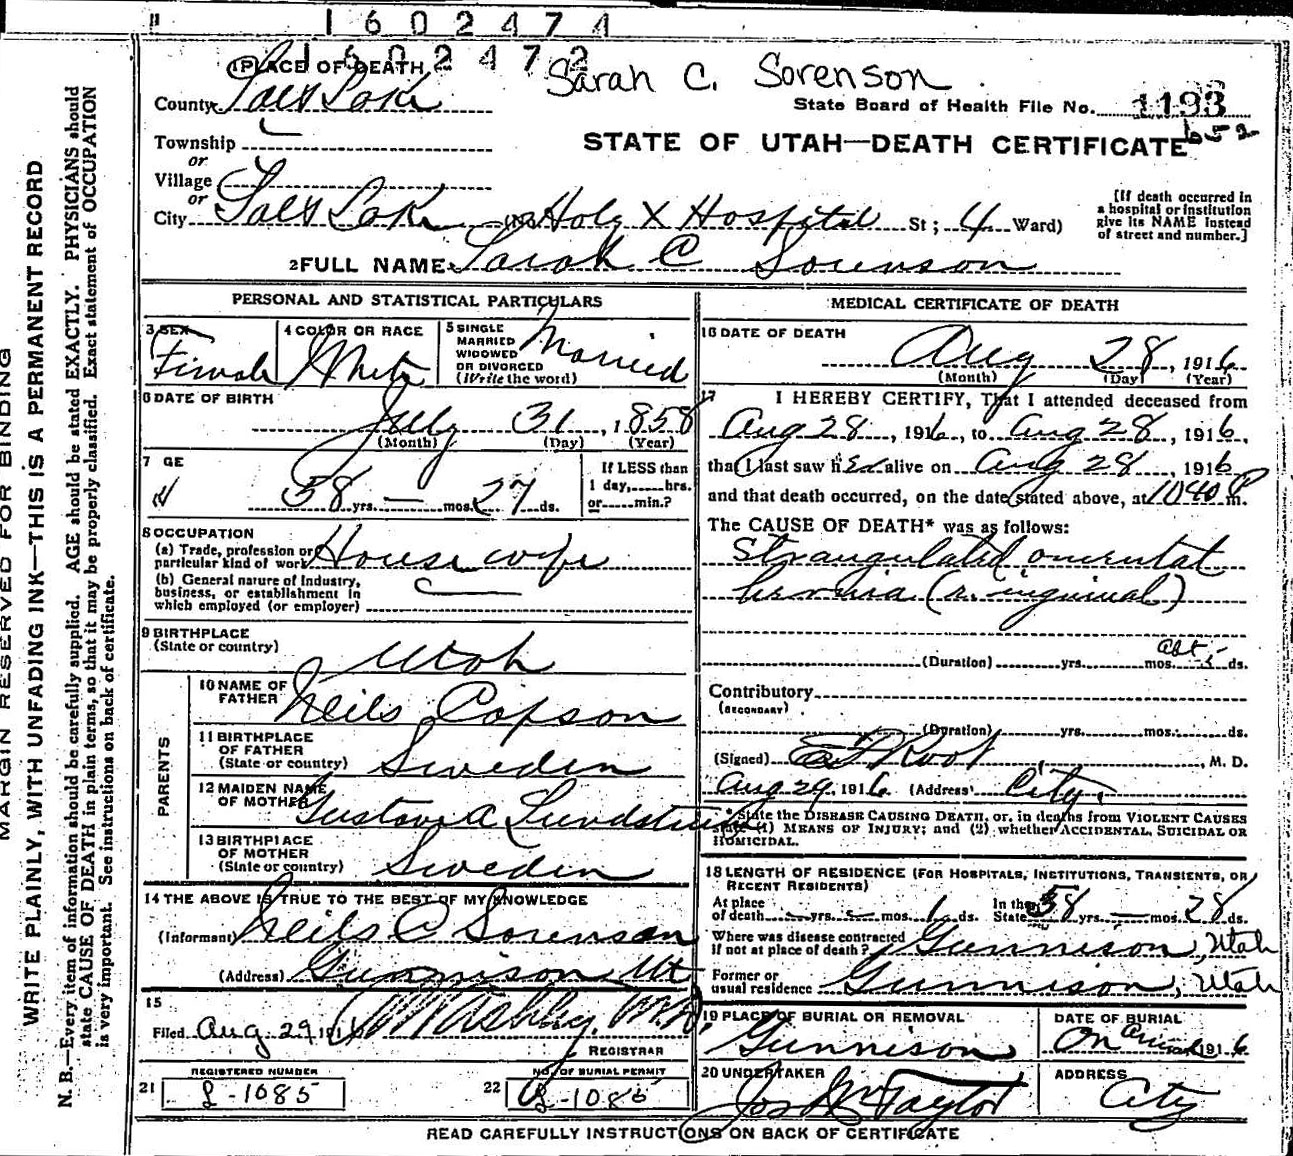 1602474
1602472
Sarah C. Sorenson
1 PLACE OF DEATH
County Salt Lake
State Board of Health File No. 1193
652
STATE OF UTAH—DEATH CERTIFICATE
Township
or
Village
or
City Salt Lake (No. Holy X Hospital St; 4 Ward)
[If death occurred in a hospital or institution give its NAME instead of street and number.]
2 FULL NAME Sarah C Sorenson
PERSONAL AND STATISTICAL PARTICULARS
3 SEX
Female
4 COLOR OR RACE
White
5 SINGLE
MARRIED
WIDOWED
OR DIVORCED
(Write the word)
Married
6 DATE OF BIRTH
July 31, 1858
(Month) (Day) (Year)
7 GE
58 yrs. — mos. 27 ds.
If LESS than
1 day,......hrs.
or......min.?
8 OCCUPATION
(a) Trade, profession or
particular kind of work Housewife
(b) General nature of Industry,
business, or establishment in
which employed (or employer)
9 BIRTHPLACE
(State or country)
Utah
PARENTS
10 NAME OF
FATHER
Neils Capson
11 BIRTHPLACE
OF FATHER
(State or country)
Sweden
12 MAIDEN NAME
OF MOTHER
Gustava Lundstrum
13 BIRTHPLACE
OF MOTHER
(State or country)
Sweden
14 THE ABOVE IS TRUE TO THE BEST OF MY KNOWLEDGE
(Informant) Neils C Sorenson
(Address) Gunnison Ut
15
Filed Aug 29 1916 Ashby. M.D.
REGISTRAR
REGISTERED NUMBER
21 L-1085
NO. OF BURIAL PERMIT
22 L-1085
MEDICAL CERTIFICATE OF DEATH
16 DATE OF DEATH
Aug 28, 1916
(Month) (Day) (Year)
17 I HEREBY CERTIFY, That I attended deceased from
Aug 28, 1916, to Aug 28, 1916,
that I last saw her alive on Aug 28, 1916
and that death occurred, on the date stated above, at 1040 P m.
The CAUSE OF DEATH* was as follows:
Strangulated omental
hernia (r. inguinal)
(Duration) yrs. mos. ds.
Contributory
(SECONDARY)
(Duration) yrs. mos. ds.
(Signed) Root, M. D.
Aug 29, 1916 (Address) City.
*State the DISEASE CAUSING DEATH, or, in deaths from VIOLENT CAUSES
state (1) MEANS OF INJURY; and (2) whether ACCIDENTAL, SUICIDAL OR
HOMICIDAL.
18 LENGTH OF RESIDENCE (FOR HOSPITALS, INSTITUTIONS, TRANSIENTS, OR
RECENT RESIDENTS)
At place
of death — yrs. — mos. 1 ds. In the State 58 yrs. — mos. 28 ds.
Where was disease contracted
if not at place of death? Gunnison, Utah
Former or
usual residence Gunnison, Utah
19 PLACE OF BURIAL OR REMOVAL
Gunnison
DATE OF BURIAL
On Arrival 1916
20 UNDERTAKER
Jos Wm Taylor
ADDRESS
City
READ CAREFULLY INSTRUCTIONS ON BACK OF CERTIFICATE
MARGIN RESERVED FOR BINDING
WRITE PLAINLY, WITH UNFADING INK—THIS IS A PERMANENT RECORD
N. B.—Every item of information should be carefully supplied. AGE should be stated EXACTLY. PHYSICIANS should
state CAUSE OF DEATH in plain terms, so that it may be properly classified. Exact statement of OCCUPATION
is very important. See instructions on back of certificate.